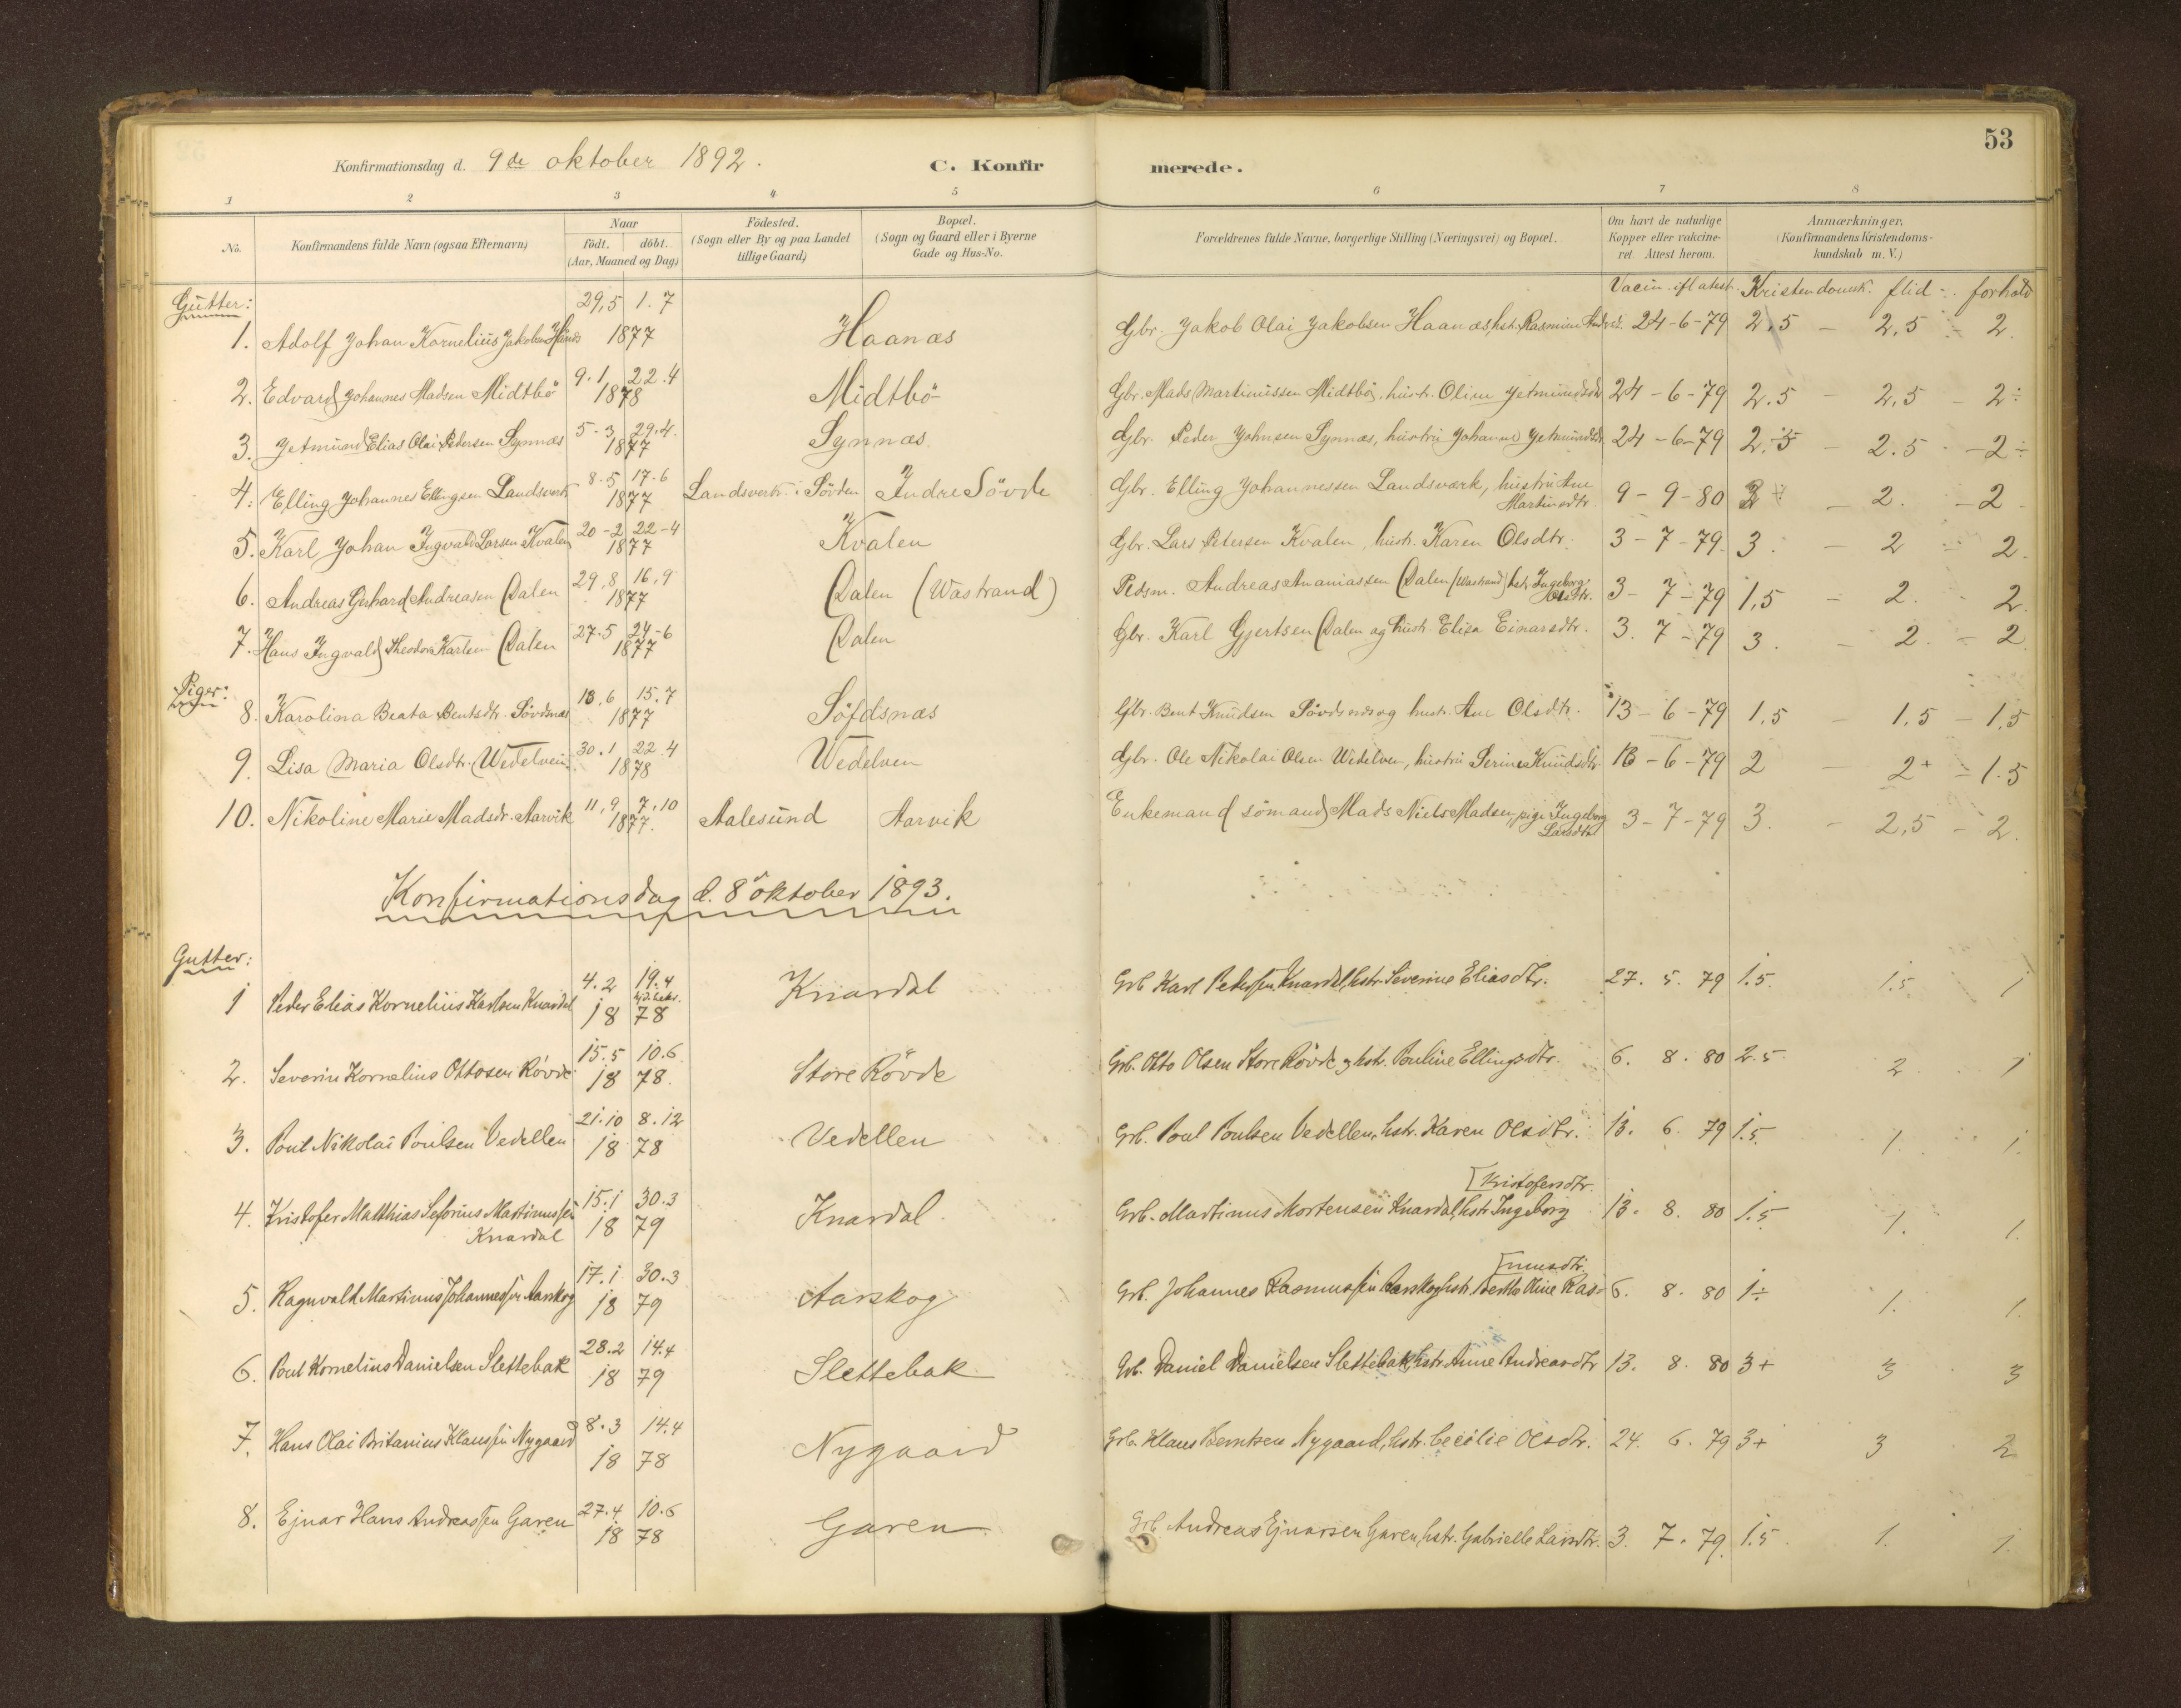 53
Konfirmationsdag d. 9de oktober 1892.
C. Konfirmerede.
1 2 3 4 5 6 7 8
No. Konfirmandens fulde Navn (ogsaa Efternavn) Naar født. døbt. (Aar, Maaned og Dag) Födested. (Sogn eller By og paa Landet tillige Gaard) Bopæl. (Sogn og Gaard eller i Byerne Gade og Hus-No. Forældrenes fulde Navne, borgerlige Stilling (Næringsvei) og Bopæl. Om havt de naturlige Kopper eller vakcineret. Attest herom. Anmærkninger, (Konfirmandens Kristendomskundskab m. V.)
Gutter: Vacin. ifl attest. Kristendomsk. flid - forhold
1. Adolf Johan Kornelius Jakobsen Haanæs 29,5 1.7 1877 Haanæs Gbr. Jakob Olai Jakobsen Haanæs, hstr. Rasmine 24-6-79 2,5 - 2,5 - 2.
2. Edvard Johannes Madsen Midtbö 9.1 22.4 1878 Midtbö Gbr. Mads Martinussen Midtbö, hustr. Oline Jetmundsdtr 24-6-79 2.5 - 2,5 - 2÷
3. Jetmund Elias Olai Pedersen Synnæs 5-3 29.4. 1877 Synnæs. Gbr. Peder Johnsen Synnæs, hustru Johanne Jetmundsdtr. 24-6-79 2.5 - 2.5 - 2÷
4. Elling Johannes Ellingsen Landsverk 8.5 17.6 1877 Landsverk i Sövden Indre Sövde Gbr. Elling Johannessen Landsværk, hustru Ane Martinsdtr. 9-9-80 3÷ - 2. - 2
5. Karl Johan Ingvald Larsen Kvalen 20-2 22-4 1877 Kvalen Gbr. Lars Petersen Kvalen, hustr. Karen Olsdtr. 3-7-79. 3. - 2 - 2.
6. Andreas Gerhard Andreasen Dalen 29,8 16,9 1877 Dalen (Wastrand) Pldsm. Andreas Ananiassen Dalen (Wastrand) hstr. Ingeborg Olsdtr. 3-7-79 1,5 - 2. - 2.
7. Hans Ingvald Theodor Karlsen Dalen 27.5 24-6 1877 Dalen Gbr. Karl Gjertsen Dalen og hustr. Elisa Einarsdtr. 3.7-79 3. - 2. - 2
Piger:
8. Karolina Beata Bentsdtr. Sövdsnæs 13,6 15.7 1877 Söfdsnæs Gbr. Bent Knudsen Sövdsnæs og hustr. Ane Olsdtr. 13-6-79 1,5 - 1.5 - 1,5
9. Lisa Maria Olsdtr. Wedelven 30.1 22.4 1878 Wedelven Gbr. Ole Nikolai Olsen Wedelven, hustru Serine Knudsdtr 13-6-79 2 - 2+ - 1.5
10. Nikoline Marie Madsdr. Aarvik 11,9 7,10 1877. Aalesund Aarvik Enkemand sömand Mads Niels Madsen, pige Ingeborg Larsdtr 3-7-79 3. - 2,5 - 2.
Konfirmationsdag d. 8 oktober 1893.
Gutter:
1 Peder Elias Kornelius Karlsen Knardal 4.2 19.4 1878 Knardal Grb Karl Pederssen Knardal, hstr. Severine Eliasdtr. 27. 5. 79 1.5. 1.5. 1
2. Severin Kornelius Ottosen Rövde 15.5 10.6 1878. Store Rövde Grb. Otto Olsen Store Rövde og hstr. Pouline Ellingsdtr. 6. 8. 80 2.5. 2 1
3. Poul Nikolai Poulsen Vedellen 21.10 8.12 1878 Vedellen Grb. Poul Poulsen Vedellen, hstr. Karen Olsdtr. 13. 6. 79 1.5. 1. 1.
4. Kristofer Matthias Seforius Martinussen Knardal 15.1 30.3 1879 Knardal. Grb. Martinus Mortensen Knardal, hstr. Ingeborg [Kristofersdtr. 13. 8. 80 1.5 1. 1.
5. Ragnvald Martinus Johannessen Aarskog 17.1 30.3 1879 Aarskog Grb. Johannes Rasmussen Aarskog, hstr. Berthe Oline Ras- [musdtr. 6. 8. 80 1÷ 1. 1.
6. Poul Kornelius Danielsen Slettebak 28.2 14.4 1879 Slettebak Grb. Daniel Danielsen Slettebak, hstr. Anne Andreasdtr 13. 8. 80 3+ 3 3
7. Hans Olai Britanius Klaussen Nygaard 8.3 14.4 1878 Nygaard Grb. Klaus Berntsen Nygaard, hstr. Cecilie Olsdtr. 24. 6. 79 3+ 3 2
8. Ejnar Hans Andreassen Garen 27.4 10.6 1878 Garen Grb. Andreas Ejnarsen Garen, hstr. Gabrielle Larsdtr. 3. 7. 79. 1.5. 1. 1.